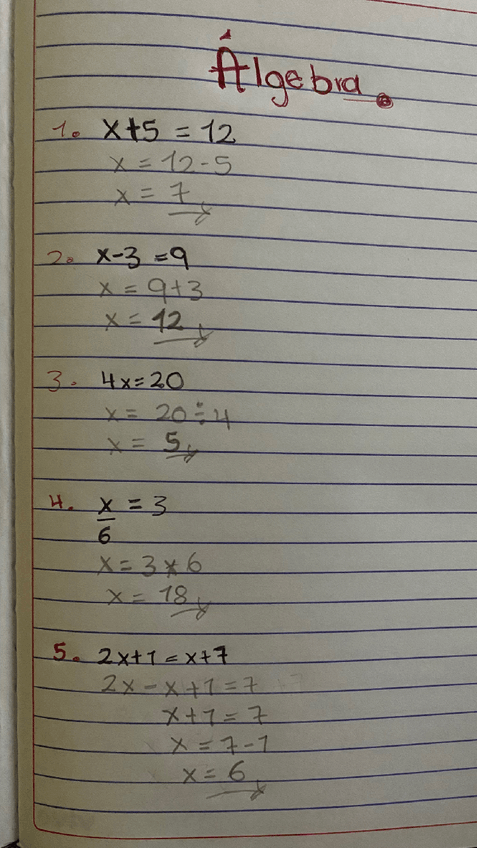 Álgebra.
1. x+5 = 12
x = 12-5
x = 7
2. x-3 = 9
x = 9+3
x = 12
3. 4x=20
x = 20÷4
x = 5
4. x/6 = 3
x = 3×6
x = 18
5. 2x+1 = x+7
2x-x+1=7
x+1=7
x = 7-1
x = 6